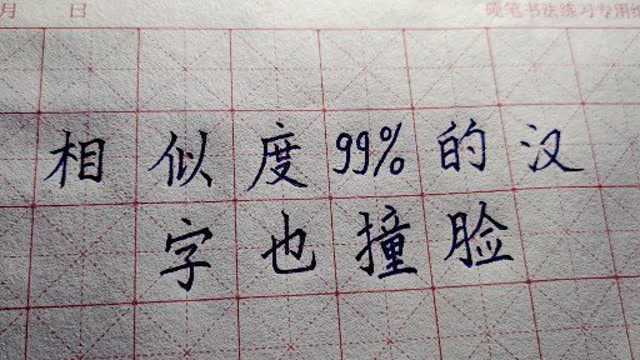 月 日 硬笔书法练习专用纸
相似度99%的汉
字也撞脸